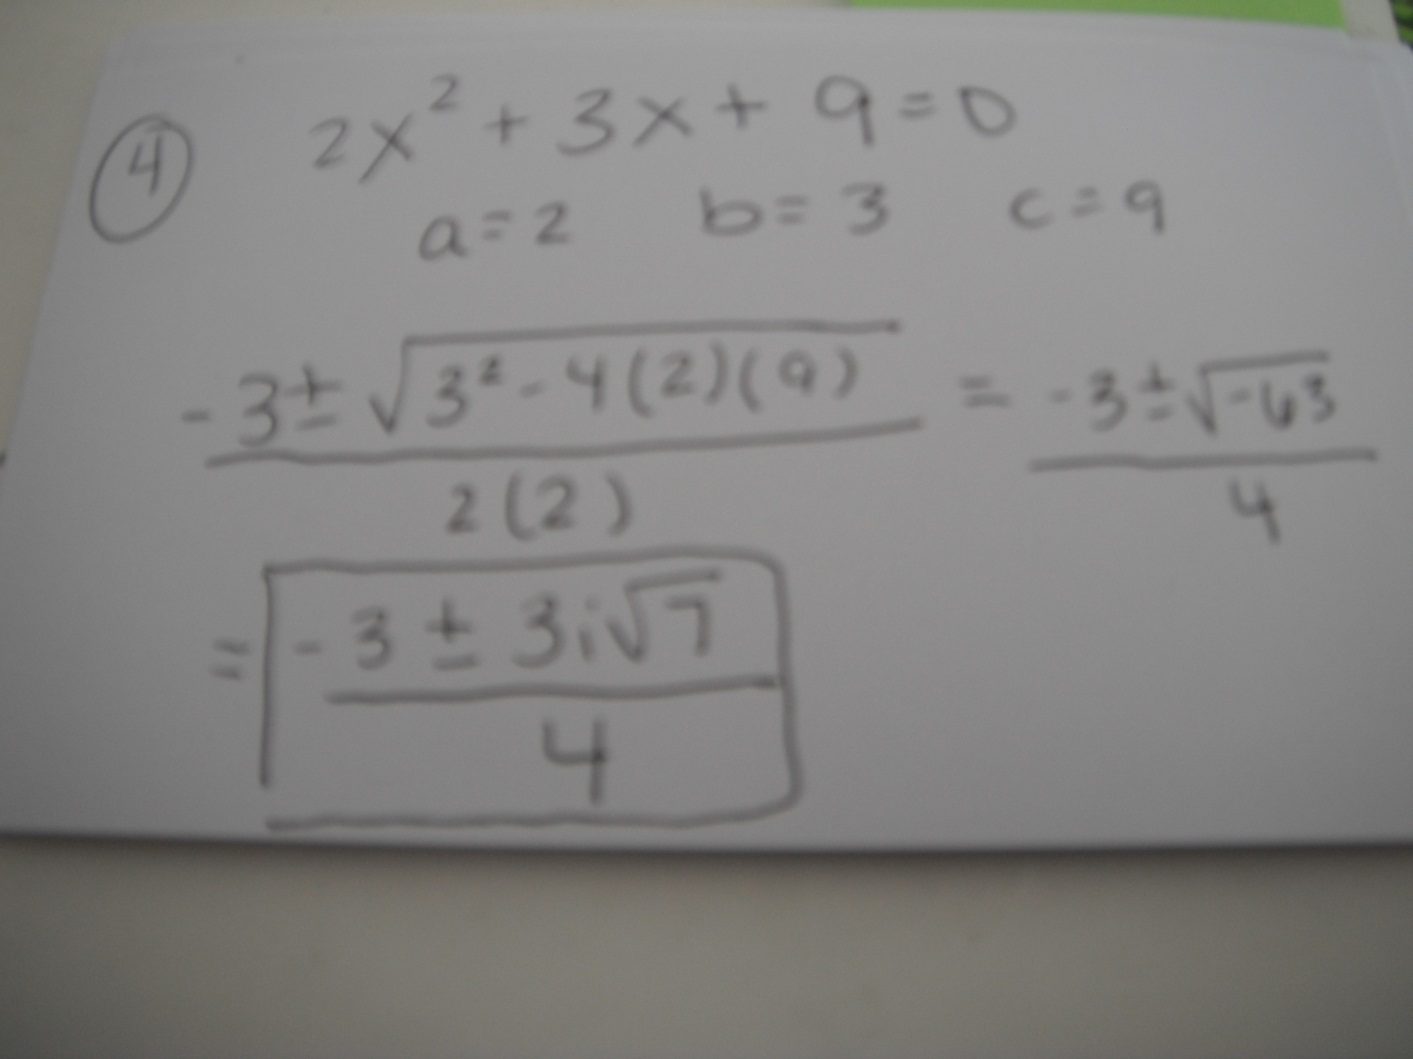 4 2x² + 3x + 9 = 0
a = 2 b = 3 c = 9
-3 ± √(3² - 4(2)(9)) / 2(2) = -3 ± √-63 / 4
= -3 ± 3i√7 / 4